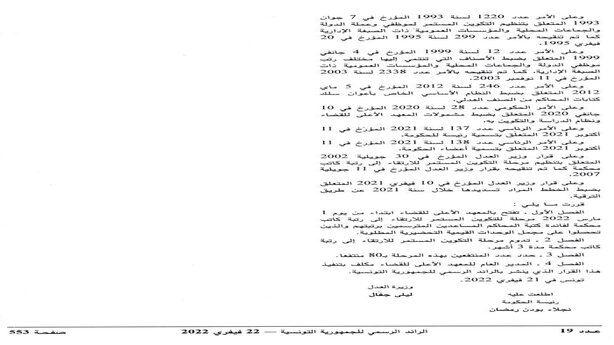 وعلى الأمر عدد 1220 لسنة 1993 المؤرخ في 7 جوان
1993 المتعلق بتنظيم التكوين المستمر لموظفي وعملة الدولة
والجماعات المحلية والمؤسسات العمومية ذات الصبغة الإدارية
كما تم تنقيحه بالأمر عدد 299 لسنة 1995 المؤرخ في 20
فيفري 1995،
وعلى الأمر عدد 12 لسنة 1999 المؤرخ في 4 جانفي
1999 المتعلق بضبط الأصناف التي تنتمي إليها مختلف رتب
موظفي الدولة والجماعات المحلية والمؤسسات العمومية ذات
الصبغة الإدارية، كما تم تنقيحه بالأمر عدد 2338 لسنة 2003
المؤرخ في 11 نوفمبر 2003،
وعلى الأمر عدد 246 لسنة 2012 المؤرخ في 5 ماي
2012 المتعلق بضبط النظام الأساسي الخاص بأعوان سلك
كتابات المحاكم من الصنف العدلي،
وعلى الأمر الحكومي عدد 28 لسنة 2020 المؤرخ في 10
جانفي 2020 المتعلق بضبط مشمولات المعهد الأعلى للقضاء
ونظام الدراسة والتكوين به،
وعلى الأمر الرئاسي عدد 137 لسنة 2021 المؤرخ في 11
أكتوبر 2021 المتعلق بتسمية رئيسة للحكومة،
وعلى الأمر الرئاسي عدد 138 لسنة 2021 المؤرخ في 11
أكتوبر 2021 المتعلق بتسمية أعضاء الحكومة،
وعلى قرار وزير العدل المؤرخ في 30 جويلية 2002
المتعلق بتنظيم مرحلة التكوين المستمر للارتقاء إلى رتبة كاتب
محكمة كما تم تنقيحه بقرار وزير العدل المؤرخ في 11 جويلية
2007،
وعلى قرار وزير العدل المؤرخ في 10 فيفري 2021 المتعلق
بضبط الخطط المراد تسديدها خلال سنة 2021 عن طريق
الترقية.
قررت ما يلي :
الفصل الأول ـ تفتح بالمعهد الأعلى للقضاء ابتداء من يوم 1
مارس 2022 مرحلة للتكوين المستمر للارتقاء إلى رتبة كاتب
محكمة لفائدة كتبة المحاكم المساعدين المترسمين برتبتهم والذين
تحصلوا على مجمل الوحدات القيمية التحضيرية المطلوبة.
الفصل 2 ـ تدوم مرحلة التكوين المستمر للارتقاء إلى رتبة
كاتب محكمة مدة 3 أشهر.
الفصل 3 ـ حدد عدد المنتفعين بهذه المرحلة بـ80 منتفعا.
الفصل 4 ـ المدير العام للمعهد الأعلى للقضاء مكلف بتنفيذ
هذا القرار الذي ينشر بالرائد الرسمي للجمهورية التونسية.
تونس في 21 فيفري 2022.
وزيرة العدل
ليلى جفال
اطلعت عليه
رئيسة الحكومة
نجلاء بودن رمضان
عدد 19 الرائد الرسمي للجمهورية التونسية — 22 فيفري 2022 صفحة 553